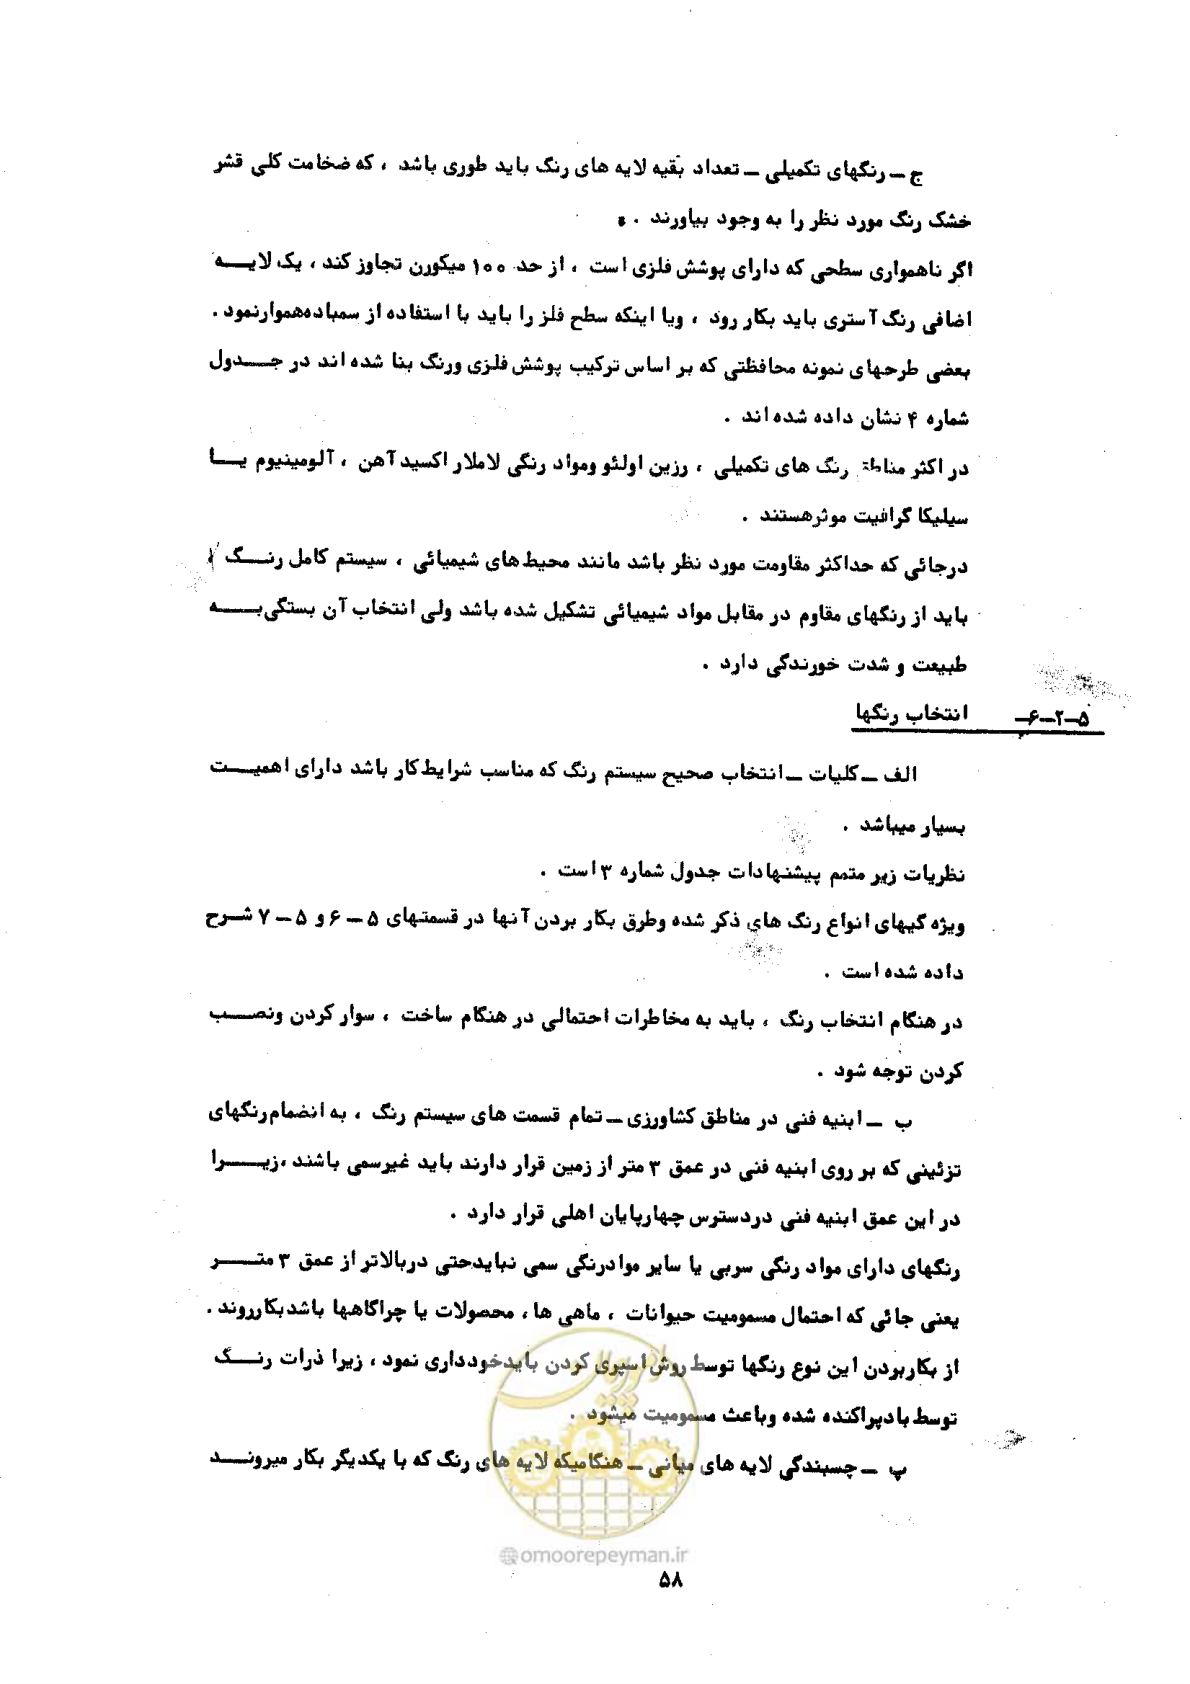 ج ــ رنگهای تکمیلی ــ تعداد بقیه لایه های رنگ باید طوری باشد ، که ضخامت کلی قشر
خشک رنگ مورد نظر را به وجود بیاورند .
اگر ناهمواری سطحی که دارای پوشش فلزی است ، از حد ۱۰۰ میکورن تجاوز کند ، یک لایــه
اضافی رنگ آستری باید بکار رود ، ویا اینکه سطح فلز را باید با استفاده از سمباده هموارنمود .
بعضی طرحهای نمونه محافظتی که بر اساس ترکیب پوشش فلزی ورنگ بنا شده اند در جــدول
شماره ۴ نشان داده شده اند .
در اکثر مناطق رنگ های تکمیلی ، رزین اولئو ومواد رنگی لاملار اکسید آهن ، آلومینیوم یــا
سیلیکا گرافیت موثرهستند .
درجائی که حداکثر مقاومت مورد نظر باشد مانند محیط های شیمیائی ، سیستم کامل رنــگ
باید از رنگهای مقاوم در مقابل مواد شیمیائی تشکیل شده باشد ولی انتخاب آن بستگی بــه
طبیعت و شدت خورندگی دارد .
۵–۲–۶– انتخاب رنگها
الف ــ کلیات ــ انتخاب صحیح سیستم رنگ که مناسب شرایط کار باشد دارای اهمیــت
بسیار میباشد .
نظریات زیر متمم پیشنهادات جدول شماره ۳ است .
ویژه گیهای انواع رنگ های ذکر شده وطرق بکار بردن آنها در قسمتهای ۵ – ۶ و ۵ – ۷ شــرح
داده شده است .
در هنگام انتخاب رنگ ، باید به مخاطرات احتمالی در هنگام ساخت ، سوار کردن ونصــب
کردن توجه شود .
ب ــ ابنیه فنی در مناطق کشاورزی ــ تمام قسمت های سیستم رنگ ، به انضمام رنگهای
تزئینی که بر روی ابنیه فنی در عمق ۳ متر از زمین قرار دارند باید غیرسمی باشند ،زیــرا
در این عمق ابنیه فنی دردسترس چهارپایان اهلی قرار دارد .
رنگهای دارای مواد رنگی سربی یا سایر موادرنگی سمی نبایدحتی دربالاتر از عمق ۳ متــر
یعنی جائی که احتمال مسمومیت حیوانات ، ماهی ها ، محصولات یا چراگاهها باشد بکارروند .
از بکاربردن این نوع رنگها توسط روش اسپری کردن بایدخودداری نمود ، زیرا ذرات رنــگ
توسط بادپراکنده شده وباعث مسمومیت میشود .
پ ــ چسبندگی لایه های میانی ــ هنگامیکه لایه های رنگ که با یکدیگر بکار میرونــد
@omoorepeyman.ir
۵۸